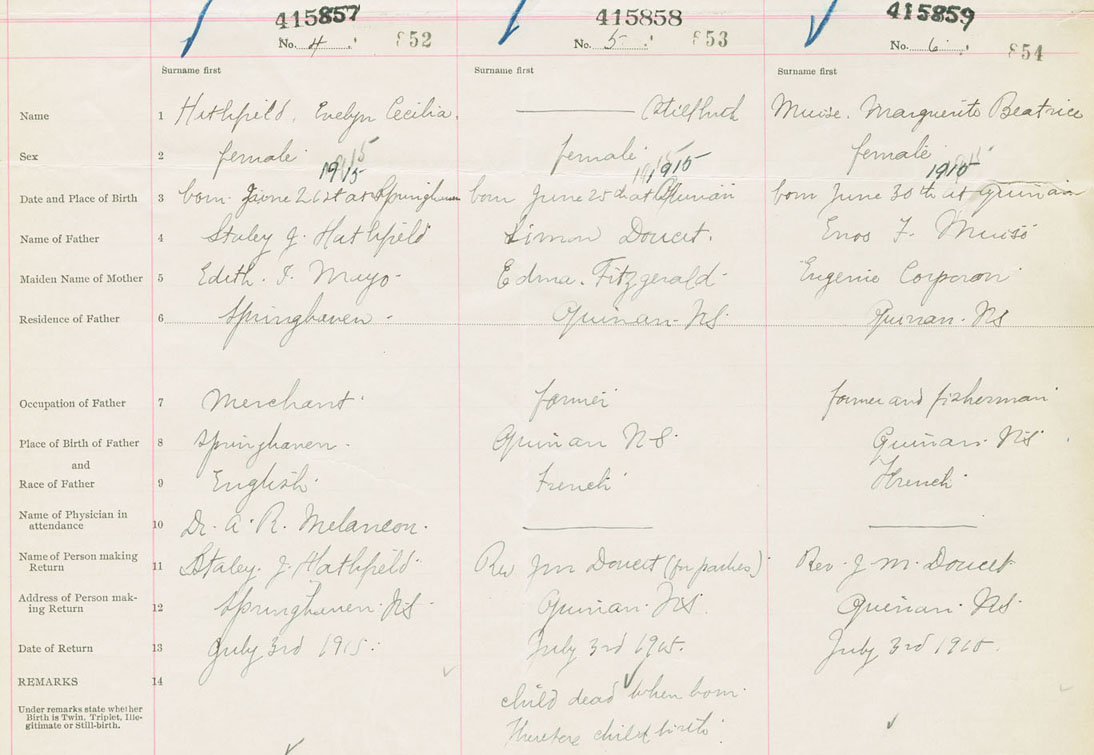 415857 415858 415859
No. 4 852 No. 5 853 No. 6 854
Surname first Surname first Surname first
Name 1 Hathfield, Evelyn Cecilia. Stillbirth Muise. Marguerite Beatrice
Sex 2 female female female
1915 1915 1915
Date and Place of Birth 3 born June 21st at Springhaven born June 25th at Quinan born June 30th at Quinan
Name of Father 4 Staley J. Hathfield Simon Doucet. Enos F. Muise
Maiden Name of Mother 5 Edith. F. Mayo Edma. Fitzgerald Eugenie Corporon
Residence of Father 6 Springhaven. Quinan. NS Quinan. NS
Occupation of Father 7 Merchant. farmer farmer and fisherman
Place of Birth of Father 8 Springhaven. Quinan NS. Quinan. NS
and
Race of Father 9 English French French
Name of Physician in
attendance 10 Dr. A. R. Melancon.
Name of Person making
Return 11 Staley. J. Hathfield Rev J M Doucet (for parties) Rev. J. M. Doucet
Address of Person mak-
ing Return 12 Springhaven. NS. Quinan. NS. Quinan. NS.
Date of Return 13 July 3rd 1915. July 3rd 1915. July 3rd 1915.
REMARKS 14
child dead when born.
Under remarks state whether
Birth is Twin, Triplet, Ille-
gitimate or Still-birth.
Therefore